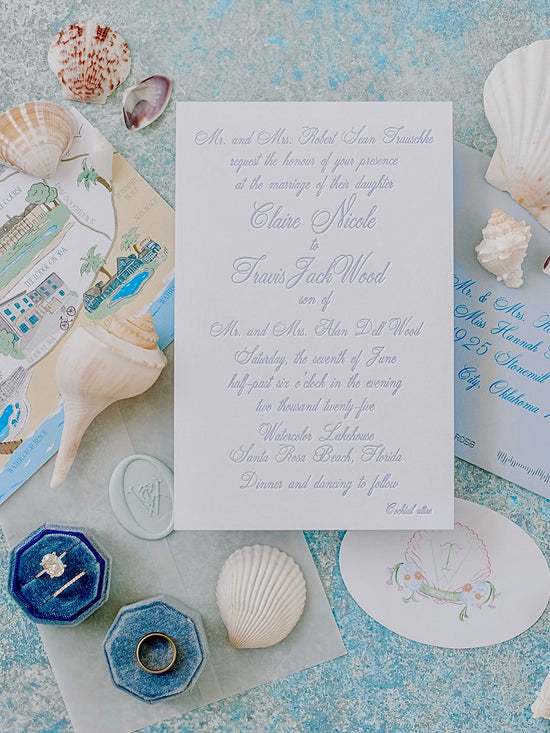 Mr. and Mrs. Robert Sean Trauschke
request the honour of your presence
at the marriage of their daughter
Claire Nicole
to
Travis Jack Wood
son of
Mr. and Mrs. Alan Dell Wood
Saturday, the seventh of June
half-past six o'clock in the evening
two thousand twenty-five
Watercolor Lakehouse
Santa Rosa Beach, Florida
Dinner and dancing to follow
Cocktail attire
THE LODGE ON 30A
Mr. & Mrs.
Miss Hannah
Stonemill
City, Oklahoma
T